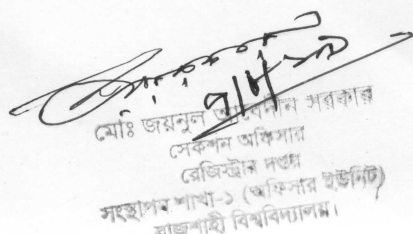 মোঃ জয়নুল আবেদীন সরকার
সেকশন অফিসার
রেজিস্ট্রার দপ্তর
সংস্থাপন শাখা-১ (অফিসার ইউনিট)
রাজশাহী বিশ্ববিদ্যালয়।